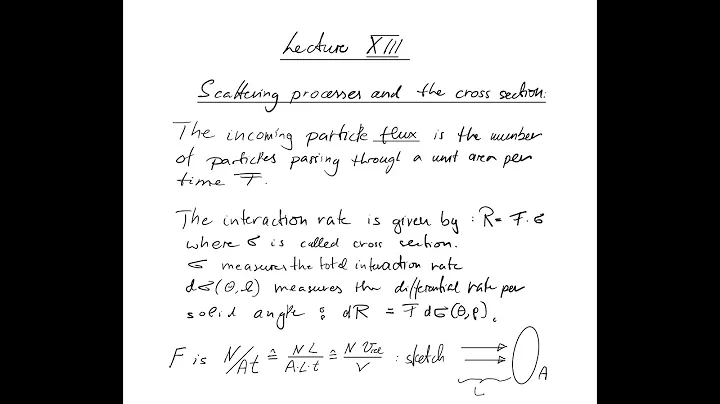 Lecture XIII
Scattering processes and the cross section:
The incoming particle flux is the number
of particles passing through a unit area per
time F.
The interaction rate is given by : R = F·σ
where σ is called cross section.
σ measures the total interaction rate
dσ(θ,φ) measures the differential rate per
solid angle : dR = F dσ(θ,φ).
F is N/At ≙ NL/A·L·t ≙ N Vrel/V : sketch
L
A